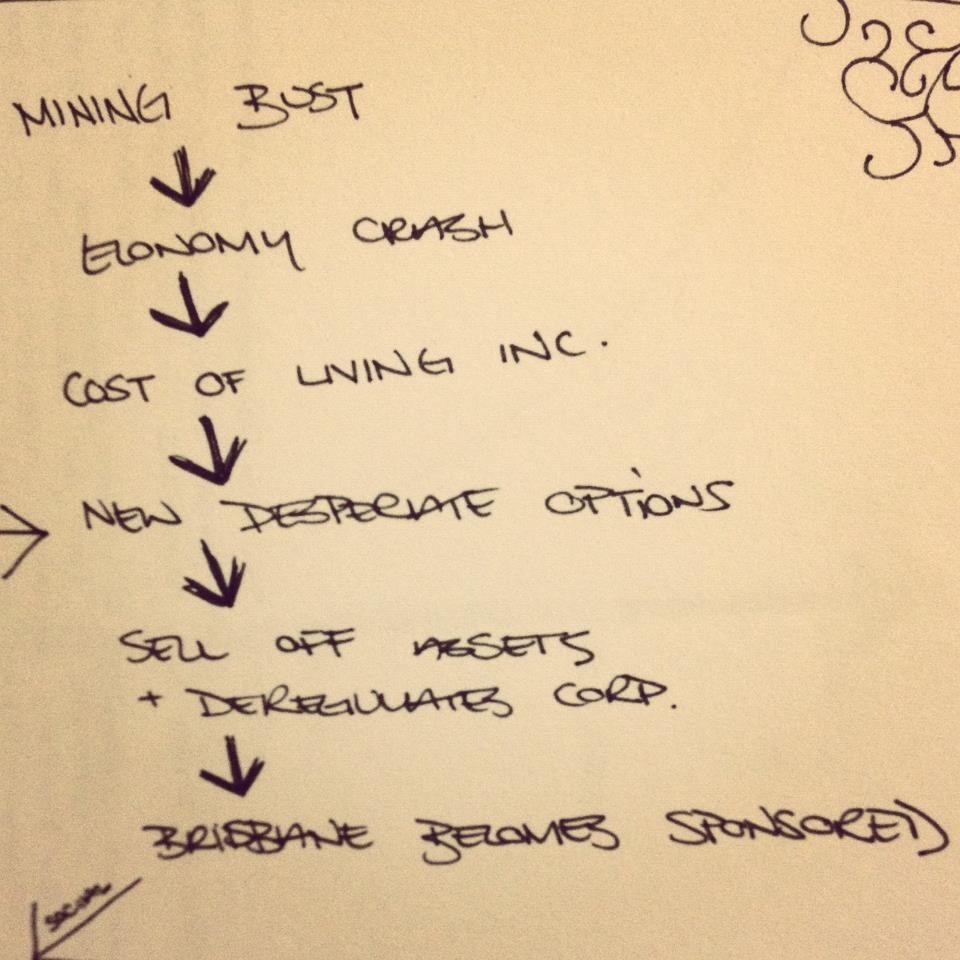 MINING BUST
ECONOMY CRASH
COST OF LIVING INC.
NEW DESPERATE OPTIONS
SELL OFF ASSETS
+ DEREGULATES CORP.
BRISBANE BECOMES SPONSORED
SOCIAL